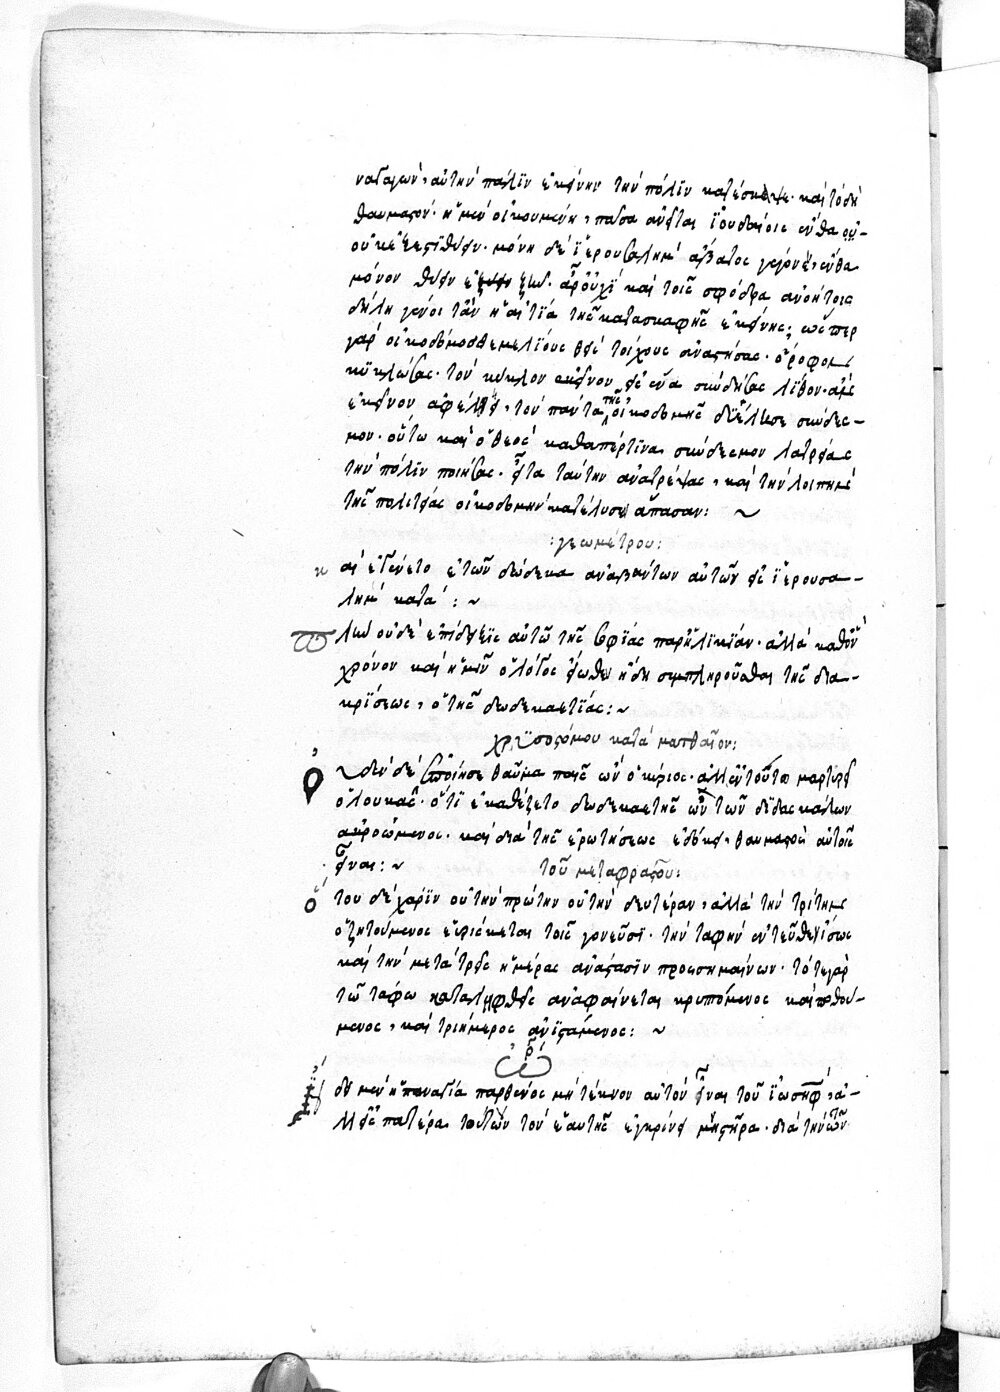 ναγαγών, αὐτὴν πάλιν ἐκείνην τὴν πόλιν κατέσκαψε· καὶ τὸ δὴ
θαυμαστόν· ἡ μὲν οἰκουμένη, πᾶσα ἀνεῖται ἰουδαίοις ἔνθα οὐ-
οὐκ ἔξεστι θύειν· μόνη δὲ ἱερουσαλὴμ ἄβατος γέγονεν, ἔνθα
μόνον θύειν ἐξῆν· ἆρ' οὐχὶ καὶ τοῖς σφόδρα ἀνοήτοις
δήλη γένοιτ' ἂν ἡ αἰτία τῆς κατασκαφῆς ἐκείνης; ὥσπερ
γὰρ οἰκοδόμος θεμελίους θεὶς τοίχους ἀναστήσας· ὄροφον
κυκλώσας· τὸν κύκλον ἐκεῖνον εἰς ἕνα συνδήσας λίθον· ἂν
ἐκεῖνον ἀφέλῃ, τὸν πάντα τῆς οἰκοδομῆς διέλυσε σύνδεσ-
μον· οὕτω καὶ ὁ θεὸς καθαπέρ τινα σύνδεσμον λατρείας
τὴν πόλιν ποιήσας· εἶτα ταύτην ἀνατρέψας, καὶ τὴν λοιπὴν
τῆς πολιτείας οἰκοδομὴν κατέλυσεν ἅπασαν: ~
:γεωμέτρου:
καὶ ἐγένετο ἐτῶν δώδεκα ἀναβάντων αὐτῶν εἰς ἱερουσα-
λὴμ κατὰ: ~
πλὴν οὐδὲ ἐπίδειξις αὐτῶ τῆς σοφίας παρ' ἡλικίαν· ἀλλὰ καθ' ὃν
χρόνον καὶ ἡμῖν ὁ λόγος εἴωθεν ἤδη συμπληροῦσθαι τῆς δια-
κρίσεως, ὁ τῆς δωδεκαετίας: ~
χρυσοστόμου κατὰ ματθαῖον:
οὐδὲν δὲ ἐποίησε θαῦμα παῖς ὢν ὁ κύριος· ἀλλ' ἓν τοῦτο μαρτυρεῖ
ὁ λουκᾶς· ὅτι ἐκαθέζετο δωδεκαετὴς ὢν τῶν διδασκάλων
ἀκροώμενος· καὶ διὰ τῆς ἐρωτήσεως ἐδόκει θαυμαστὸς αὐτοῖς
εἶναι: ~ τοῦ μεταφραστοῦ:
ὅτου δὲ χάριν οὐ τὴν πρώτην οὐ τὴν δευτέραν, ἀλλὰ τὴν τρίτην
ὁ ζητούμενος εὑρίσκεται τοῖς γονεῦσι· τὴν ταφὴν ἐντεῦθεν ἴσως
καὶ τὴν μετὰ τρεῖς ἡμέρας ἀνάστασιν προσημαίνων· τότε γὰρ
τῶ τάφω καταληφθεὶς ἀναφαίνεται κρυπτόμενος καὶ ποθού-
μενος, καὶ τριήμερος ἀνιστάμενος: ~
ᾔδει μὲν ἡ παναγία παρθένος μὴ τέκνον αὐτὸν εἶναι τοῦ ἰωσὴφ, ἀλ-
λ' εἰς πατέρα τούτων τὸν ἑαυτῆς ἐγκρίνει μνηστῆρα· διὰ τὴν τῶν